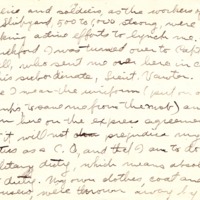 lice and soldiers, as the workers of
Shipyard, 500 to 1,000 strong, were
making active efforts to lynch me.
I was turned over to Capt
ll, who sent me over here in c
his subordinate, Lieut.
I wear the uniform (put on a
to save me from the mob) and
here on the express agreeme
t it will not prejudice my
tus as a C.O, and that I am to do
litary duty, which means absol
duty. My own clothes, coat an
were thrown away by